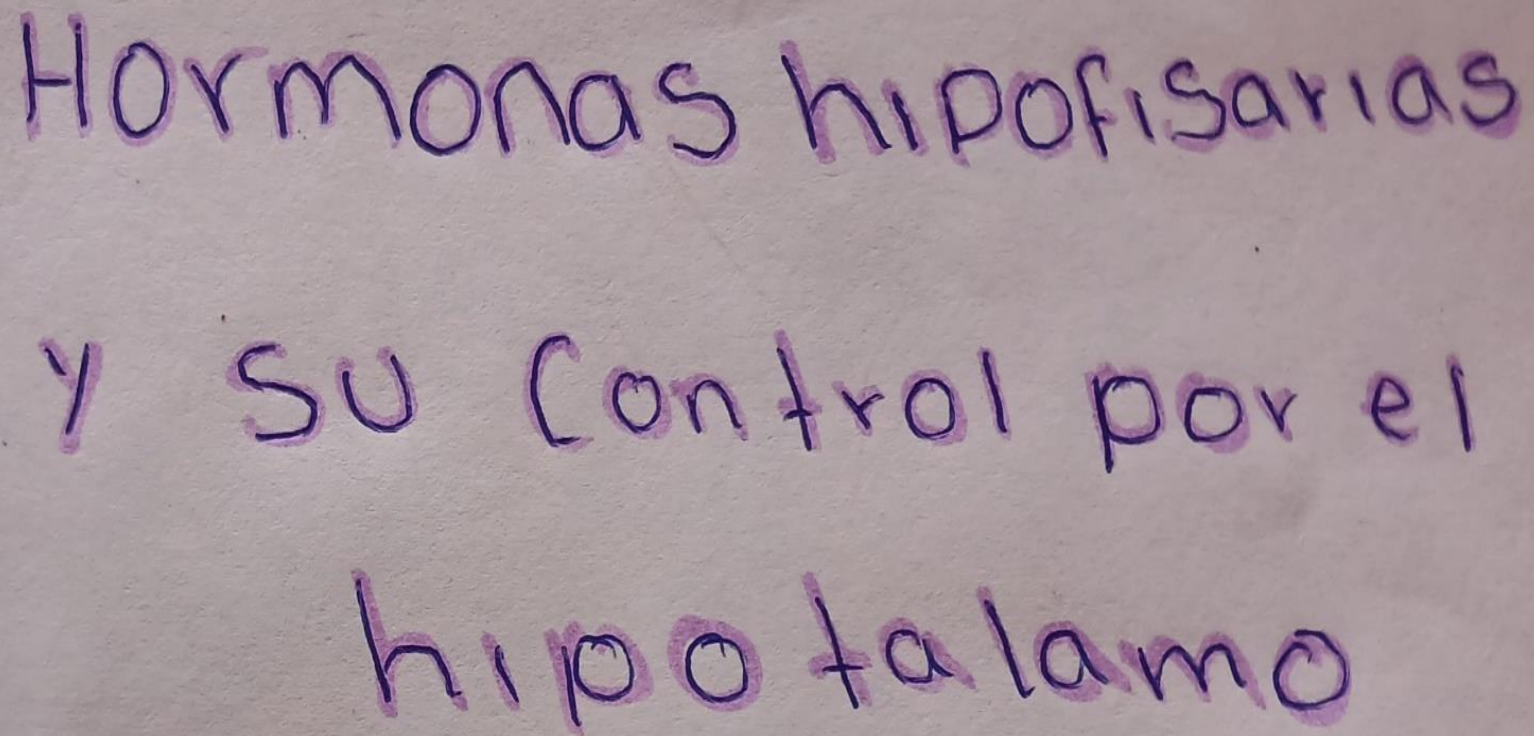 Hormonas hipofisarias
y su control por el
hipotalamo